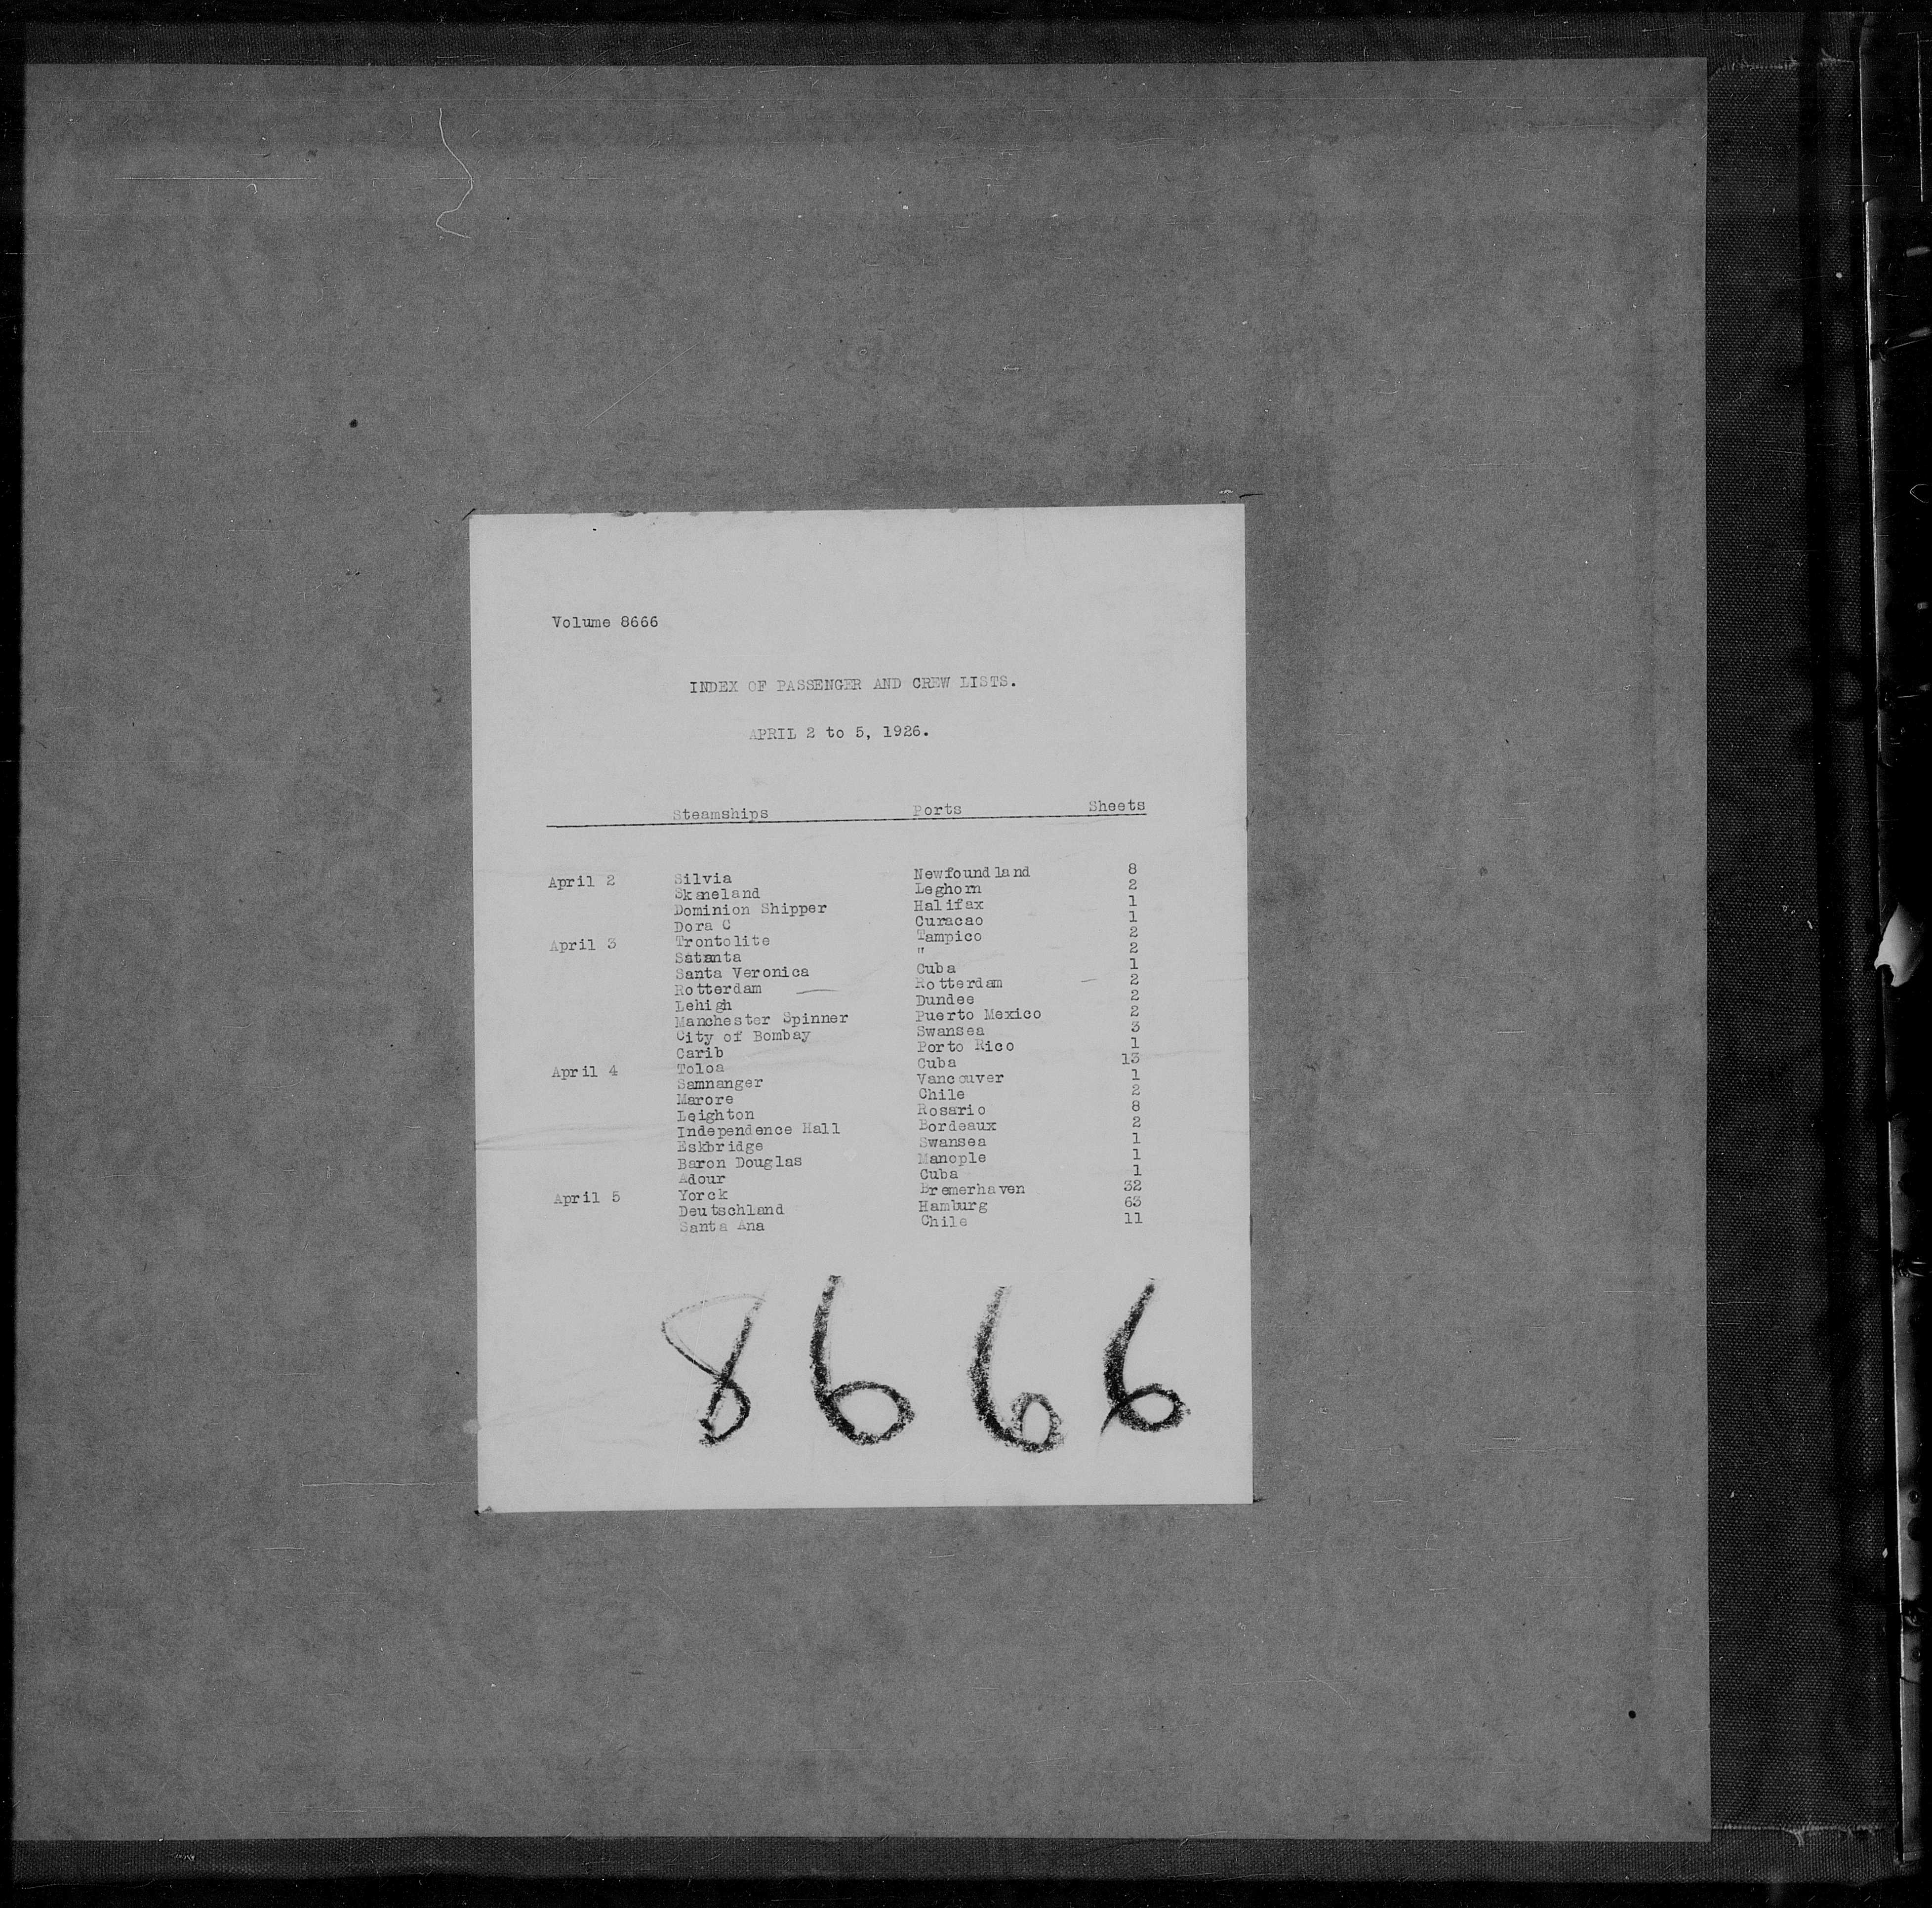 Volume 8666
INDEX OF PASSENGER AND CREW LISTS.
APRIL 2 to 5, 1926.
Steamships Ports Sheets
April 2 Silvia Newfoundland 8
Skaneland Leghorn 2
Dominion Shipper Halifax 1
Dora C Curacao 1
April 3 Trontolite Tampico 2
Satanta " 2
Santa Veronica Cuba 1
Rotterdam Rotterdam 2
Lehigh Dundee 2
Manchester Spinner Puerto Mexico 2
City of Bombay Swansea 3
Carib Porto Rico 1
April 4 Toloa Cuba 13
Samnanger Vancouver 1
Marore Chile 2
Leighton Rosario 8
Independence Hall Bordeaux 2
Eskbridge Swansea 1
Baron Douglas Manople 1
Adour Cuba 1
April 5 Yorck Bremerhaven 32
Deutschland Hamburg 63
Santa Ana Chile 11
8666